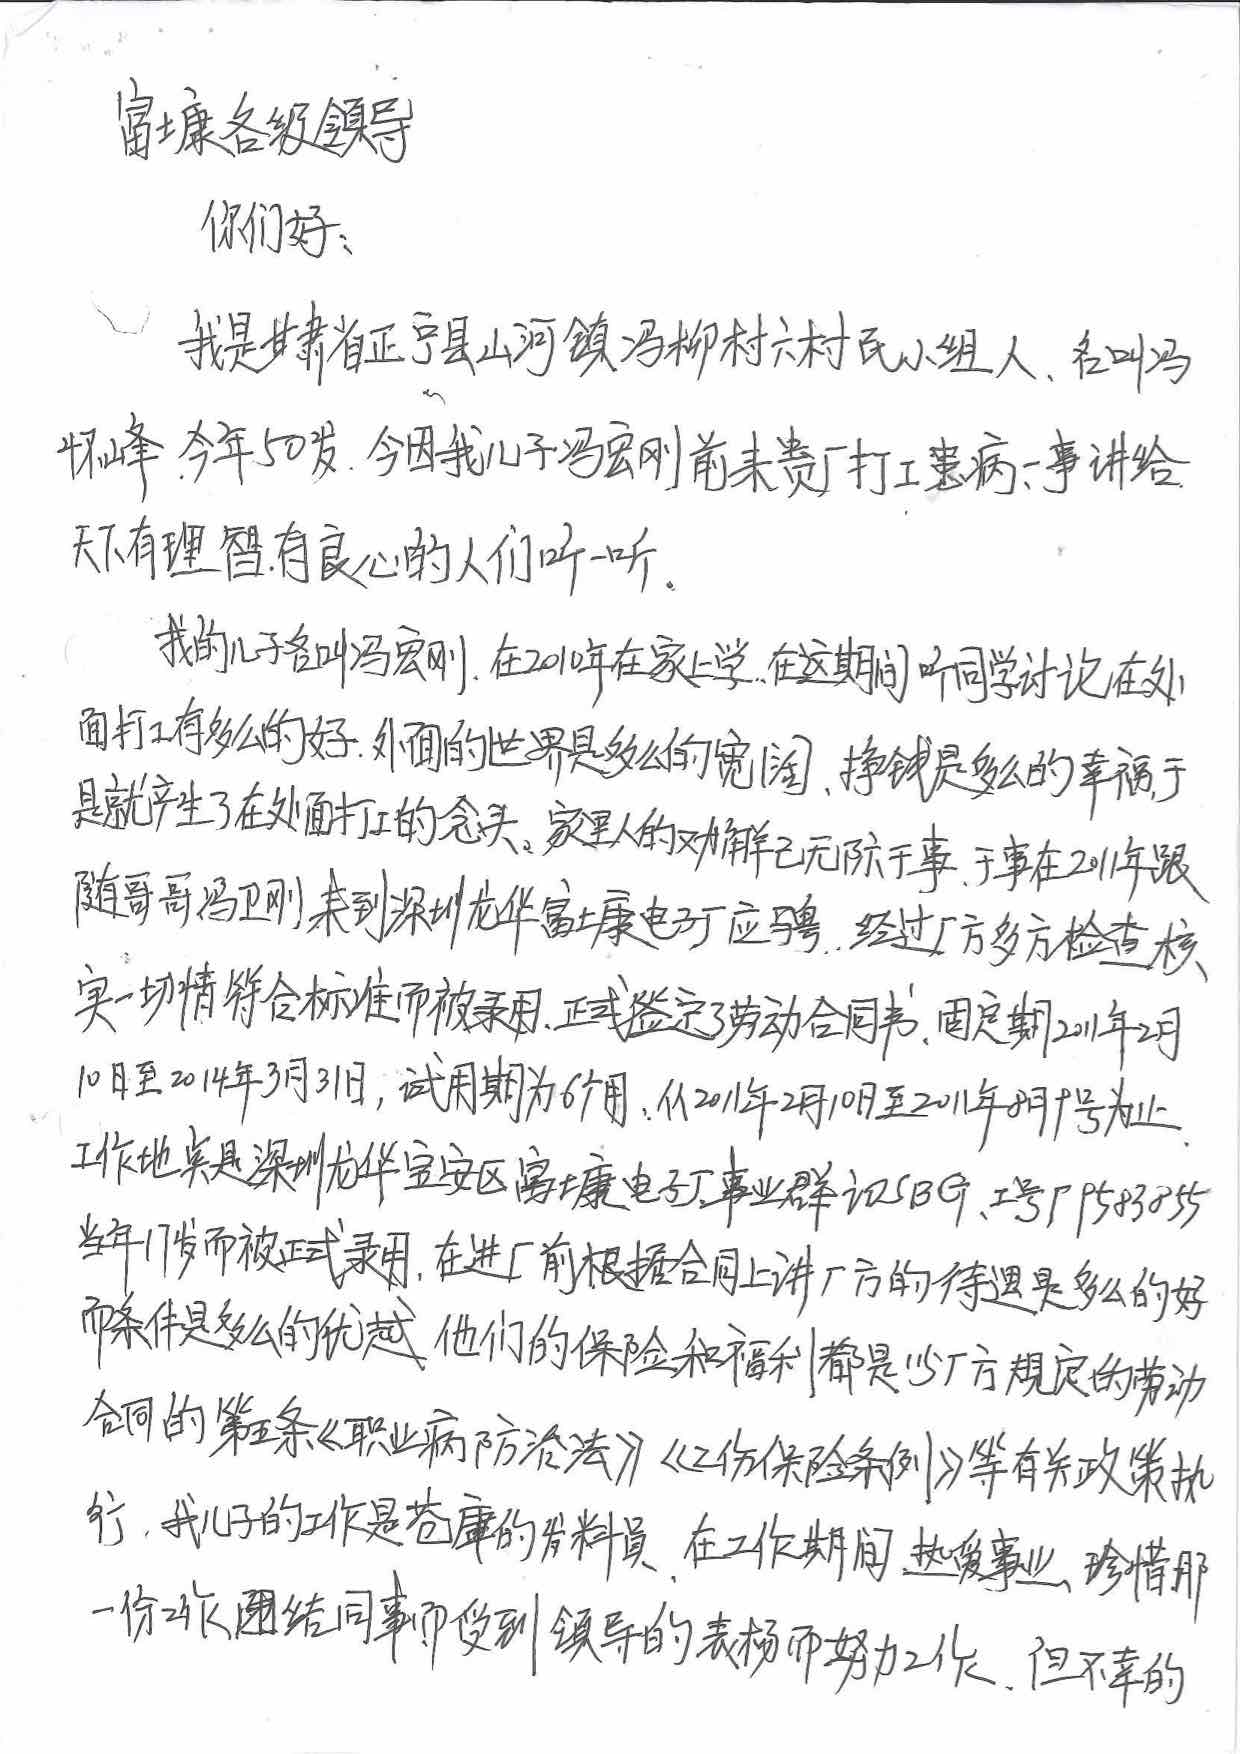 富士康各级领导
你们好：
我是甘肃省正宁县山河镇冯柳村六村民小组人、名叫冯
怀峰.今年50岁.今因我儿子冯宏刚前来贵厂打工患病一事讲给
天下有理智.有良心的人们听一听。
我的儿子名叫冯宏刚.在2010年在家上学.在这期间听同学讨论在处
面打工有多么的好.外面的世界是多么的宽阔、挣钱是多么的幸福,于
是就产生了在处面打工的念头。家里人的劝解已无际于事、于事在2011年跟
随哥哥冯卫刚来到深圳龙华富士康电子厂应骋.经过厂方多方检查核
实一切情符合标准而被录用、正式签定了劳动合同书、固定期2011年2月
10日至2014年3月31日，试用期为6个月、从2011年2月10日至2011年8月9号为止.
工作地实是深圳龙华宝安区富士康电子厂事业群记SBG、工号F9583855
当年17岁而被正式录用.在进厂前根据合同上讲厂方的待遇是多么的好
而条件是多么的优越他们的保险和福利都是以厂方规定的劳动
合同的第五条《职业病防治法》《工伤保险条例》等有关政策执
行.我儿子的工作是苍库的发料员.在工作期间热爱事业、珍惜那
一份工作团结同事而受到领导的表杨而努力工作、但不幸的